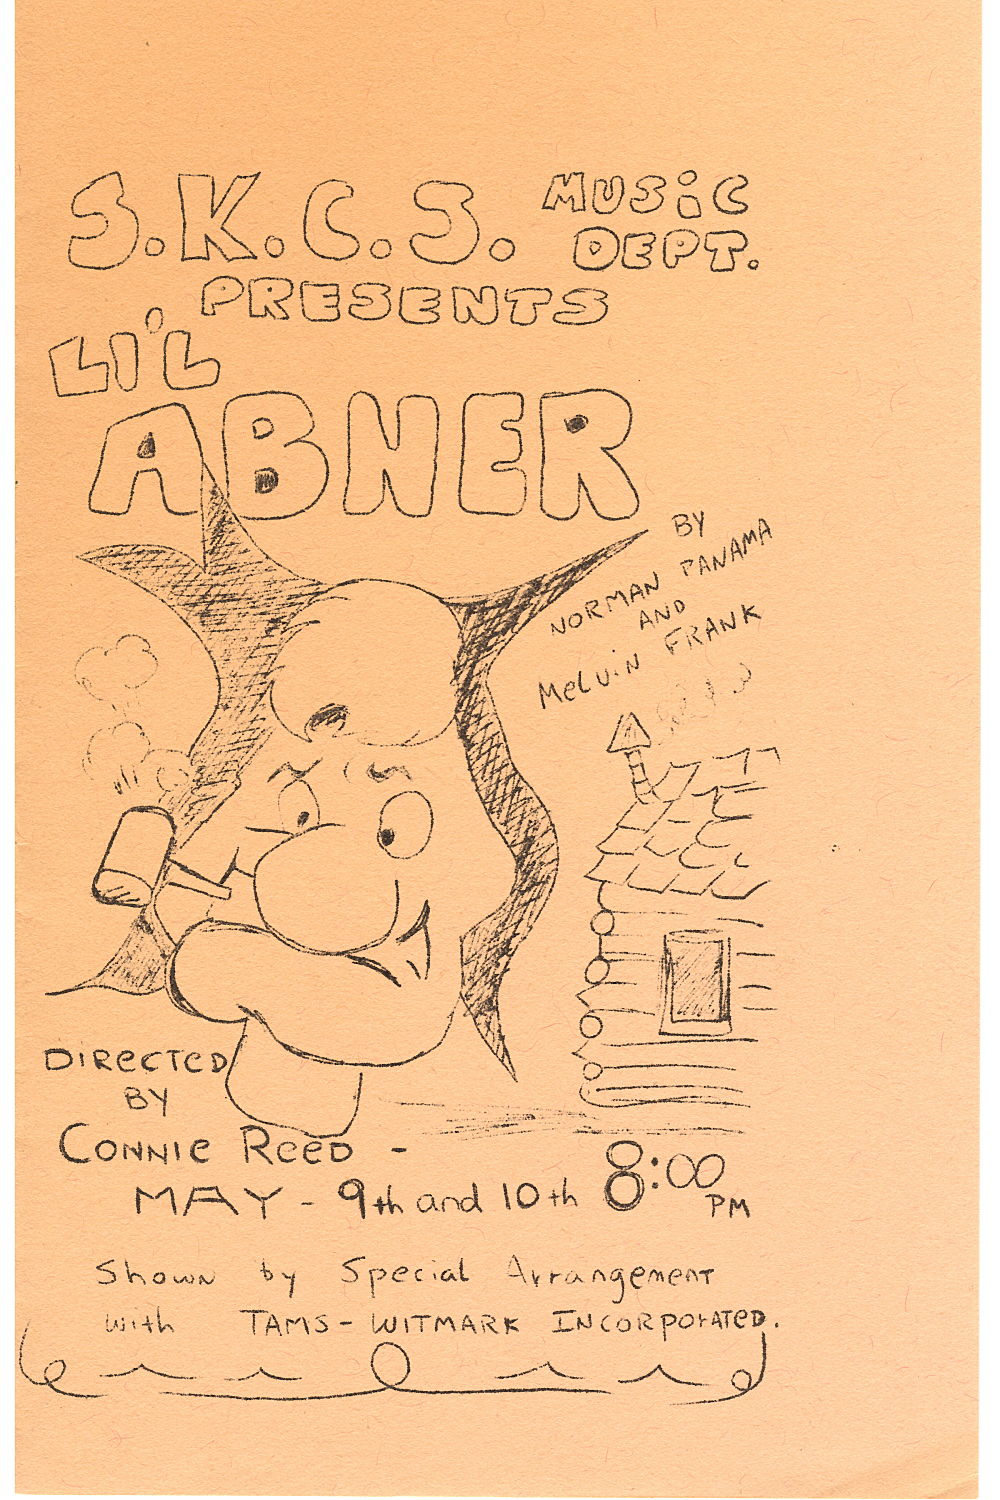 S.K.C.S. MUSiC
DEPT.
PRESENTS
LI'L
ABNER
BY
NORMAN PANAMA
AND
MeLViN FRANK
DiRecTeD
BY
CONNIe ReeD -
MAY - 9th and 10th 8:00
PM
Shown by Special ArrangemenT
with TAMS-WITMARK INCORporATeD.